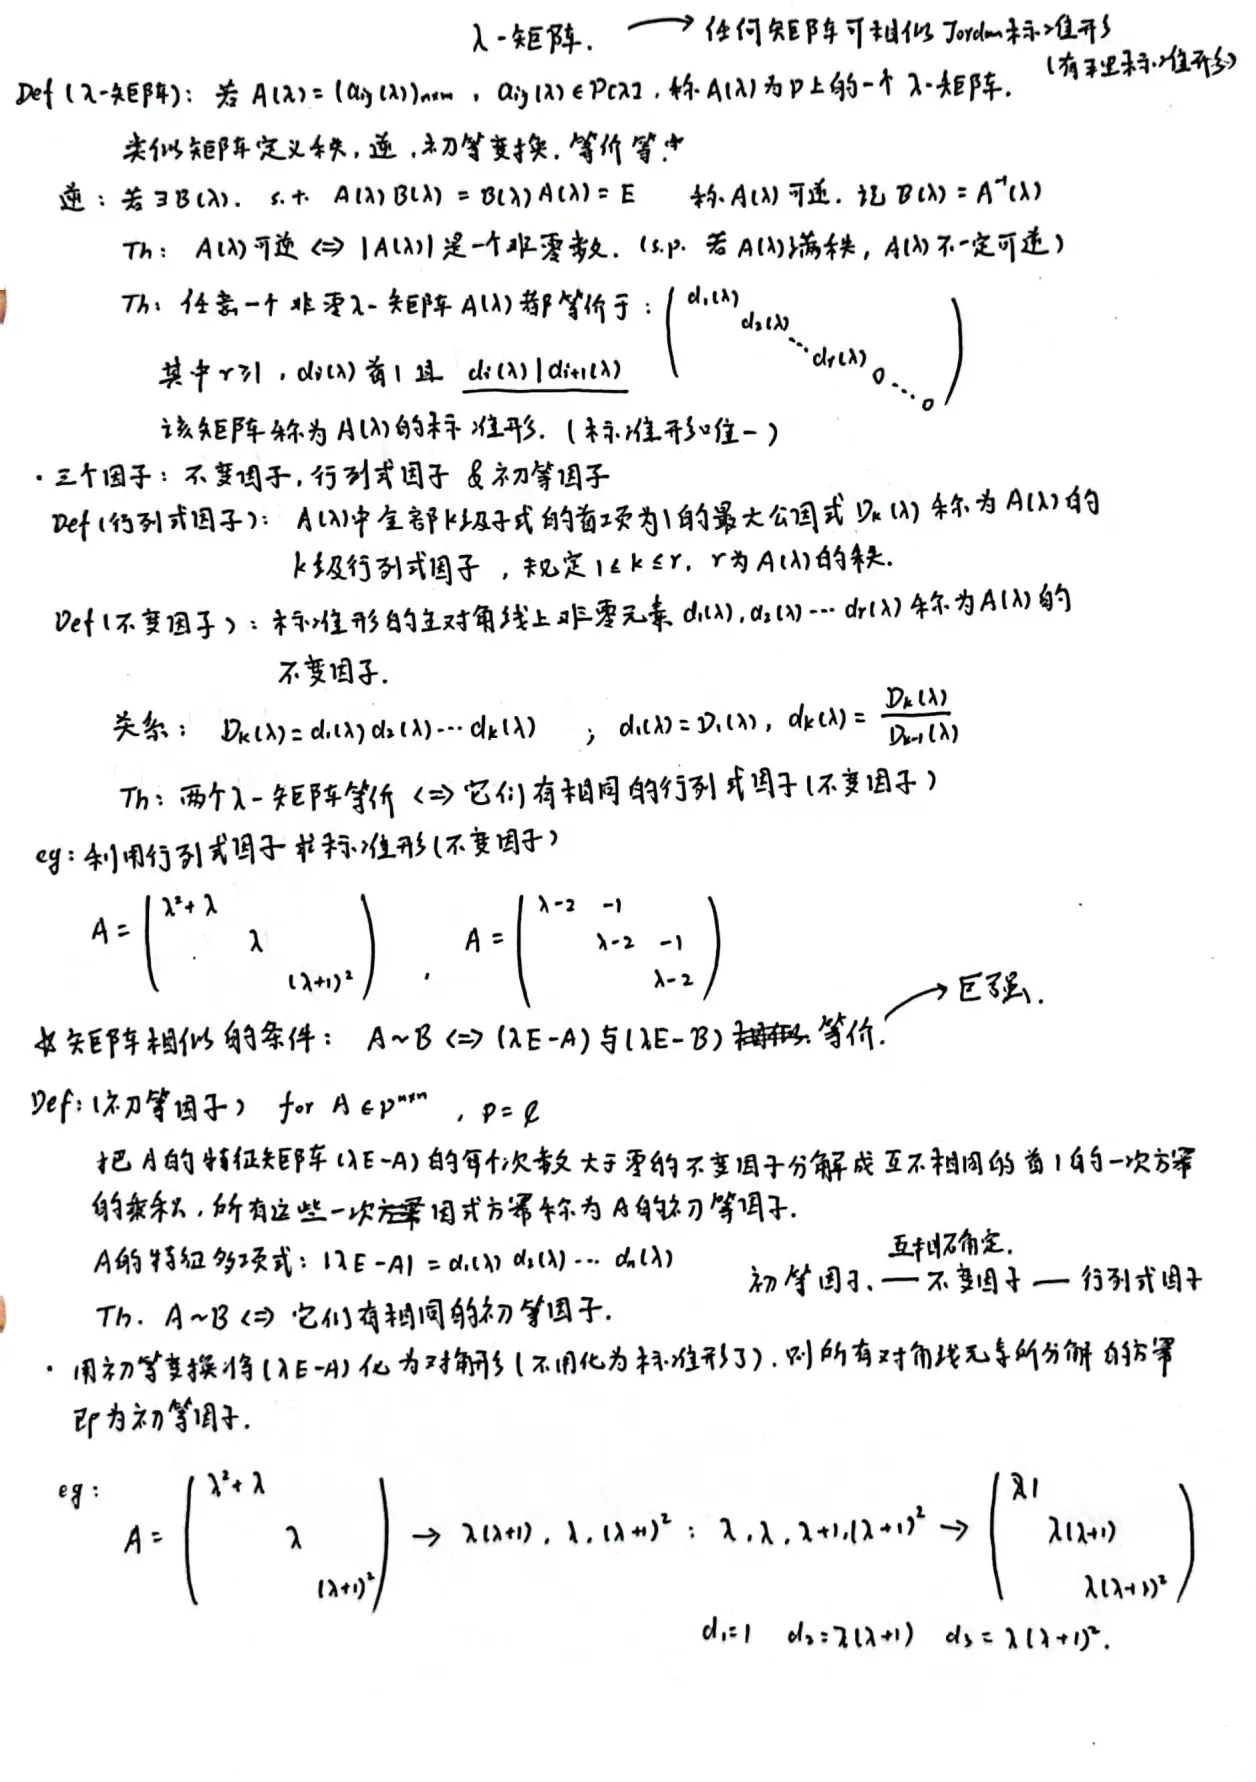 λ-矩阵. → 任何矩阵可相似Jordan标准形
(有理标准形)
Def (λ-矩阵): 若 A(λ) = (aij(λ))n×m , aij(λ)∈P[λ], 称A(λ)为P上的一个 λ-矩阵.
类似矩阵定义秩, 逆, 初等变换, 等价等.
逆: 若∃B(λ). s.t. A(λ)B(λ) = B(λ)A(λ) = E 称A(λ)可逆. 记 B(λ) = A⁻¹(λ)
Th: A(λ)可逆 <=> |A(λ)| 是一个非零数. (s.p. 若A(λ)满秩, A(λ)不一定可逆)
Th: 任意一个非零λ-矩阵A(λ)都等价于: ( d₁(λ) d₂(λ) ⋯ dr(λ) 0 ⋯ 0 )
其中 r≥1 , di(λ) 首1 且 di(λ)|di+1(λ)
该矩阵称为A(λ)的标准形. (标准形唯一)
· 三个因子: 不变因子, 行列式因子 & 初等因子
Def(行列式因子): A(λ)中全部k级子式的首项为1的最大公因式 Dk(λ) 称为A(λ)的
k级行列式因子 , 规定 1≤k≤r, r为A(λ)的秩.
Def(不变因子): 标准形的主对角线上非零元素 d₁(λ), d₂(λ) ⋯ dr(λ) 称为A(λ)的
不变因子.
关系: Dk(λ) = d₁(λ)d₂(λ)⋯dk(λ) ; d₁(λ) = D₁(λ), dk(λ) = Dk(λ)/Dk-1(λ)
Th: 两个λ-矩阵等价 <=> 它们有相同的行列式因子(不变因子)
eg: 利用行列式因子求标准形(不变因子)
A = ( λ²+λ λ (λ+1)² ) , A = ( λ-2 -1 λ-2 -1 λ-2 )
→ 巨强.
矩阵相似的条件: A~B <=> (λE-A)与(λE-B) 等价.
Def:(初等因子) for A∈Pⁿˣⁿ , P=ℂ
把A的特征矩阵(λE-A)的每个次数大于零的不变因子分解成互不相同的首1的一次方幂
的乘积, 所有这些一次因式方幂称为A的初等因子.
A的特征多项式: |λE-A| = d₁(λ) d₂(λ)⋯ dn(λ)
互相确定.
初等因子. — 不变因子 — 行列式因子
Th. A~B <=> 它们有相同的初等因子.
· 用初等变换将(λE-A)化为对角形(不用化为标准形了), 则所有对角线元素所分解的方幂
即为初等因子.
eg:
A = ( λ²+λ λ (λ+1)² ) → λ(λ+1), λ, (λ+1)² : λ, λ, λ+1, (λ+1)² → ( 1 λ(λ+1) λ(λ+1)² )
d₁=1 d₂=λ(λ+1) d₃=λ(λ+1)².